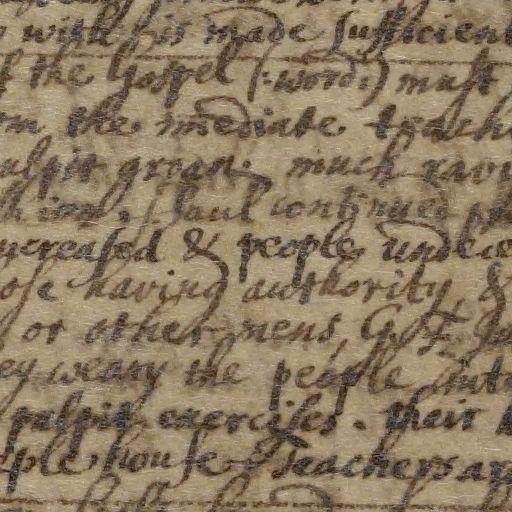 with his made sufficient
the Gospel (:word:) must
the imediate teach
pulpit groan. much rav
Paul continued
increased & people undece
ose having authority, &
or other mens, G. F.
ey weary the people into
pulpit exercises. their
ple house Teachers ar